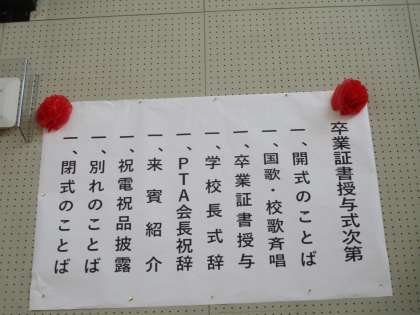 卒業証書授与式次第
一、開式のことば
一、国歌・校歌斉唱
一、卒業証書授与
一、学校長式辞
一、PTA会長祝辞
一、来賓紹介
一、祝電祝品披露
一、別れのことば
一、閉式のことば